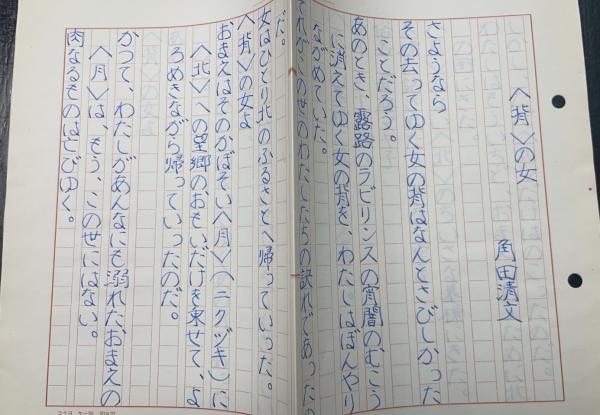 〈背〉の女
角田清文
さようなら
その去ってゆく女の背はなんとさびしかった
ことだろう。
あのとき、露路のラビリンスの宵闇のむこう
に消えてゆく女の背を、わたしはぼんやり
ながめていた。
それがこのせのわたしたちの訣れであったの
だ。
女はひとり北のふるさとへ帰っていった。
〈背〉の女よ
おまえはそのかぼそい〈月〉(ニクヅキ)に
〈北〉への望郷のおもいだけを乗せて、よ
ろめきながら帰っていったのだ。
かつて、わたしがあんなにも溺れた、おまえの
〈月〉は、もう、この世にはない。
肉なるものは亡びゆく。
コクヨ ケー20 20×20